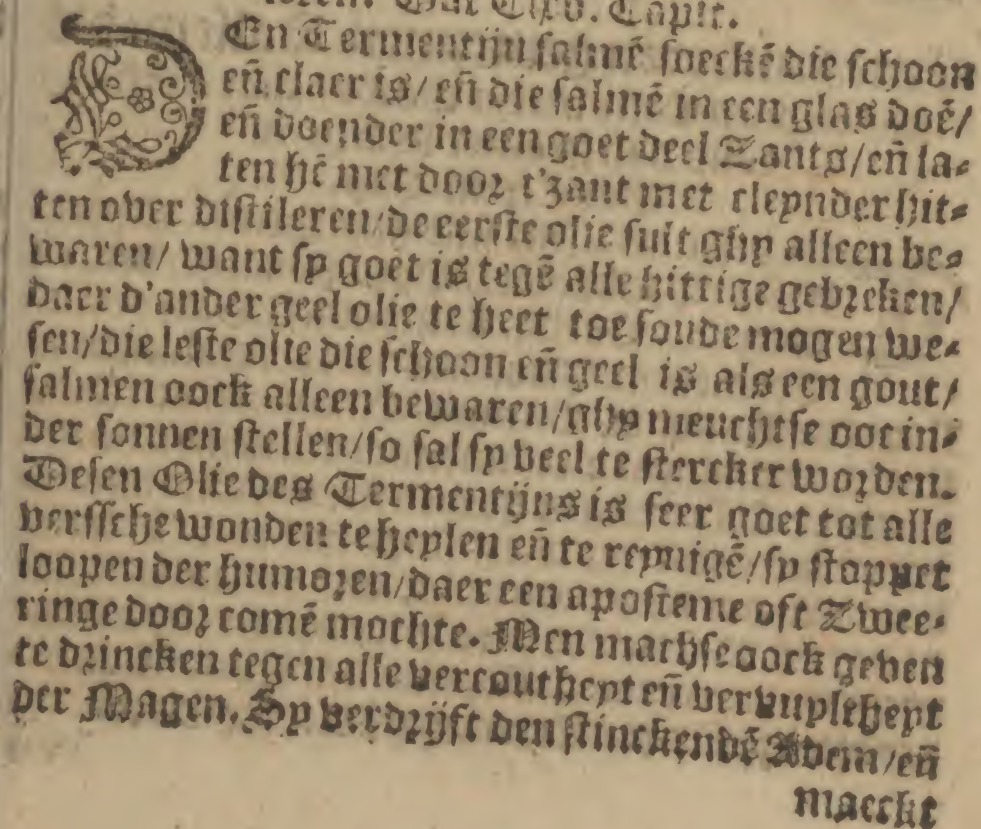 Dat Clxv. Capit.
DEn Termentijn salmē soeckē die schoon
eñ claer is/ eñ die salmē in een glas doē/
eñ doender in een goet deel Zants/eñ la-
ten hē met door t'zant met cleynder hit-
ten over distileren/de eerste olie sult ghy alleen be-
waren/ want sy goet is tegē alle hittige gebreken/
daer d'ander geel olie te heet toe soude mogen we-
sen/die leste olie die schoon eñ geel is als een gout/
salmen oock alleen bewaren/ghy meuchtse oot in-
der sonnen stellen/so sal sy veel te stercker worden.
Desen Olie des Termentijns is seer goet tot alle
verssche wonden te heylen eñ te reynigē/sy stoppet
loopen der humoren/daer een aposteme oft Zwee-
ringe door comē mochte. Men machse oock geven
te drincken tegen alle vercoutheyt eñ vervuyltheyt
der Magen. Sy verdrijft den stinckendē Adem/eñ
maeckt